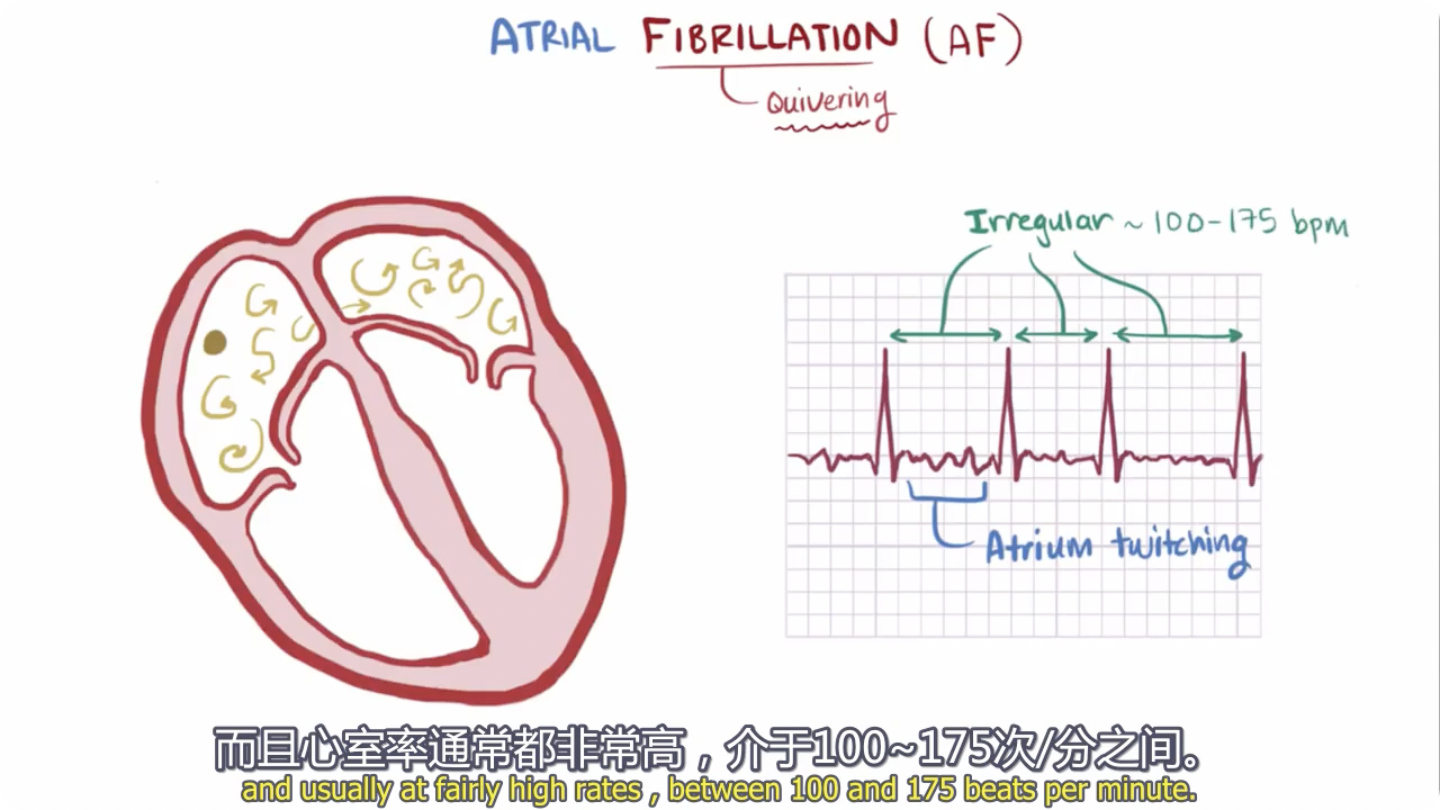 ATRIAL FIBRILLATION (AF)
Quivering
Irregular ~ 100-175 bpm
Atrium twitching
而且心室率通常都非常高，介于100~175次/分之间。
and usually at fairly high rates , between 100 and 175 beats per minute.